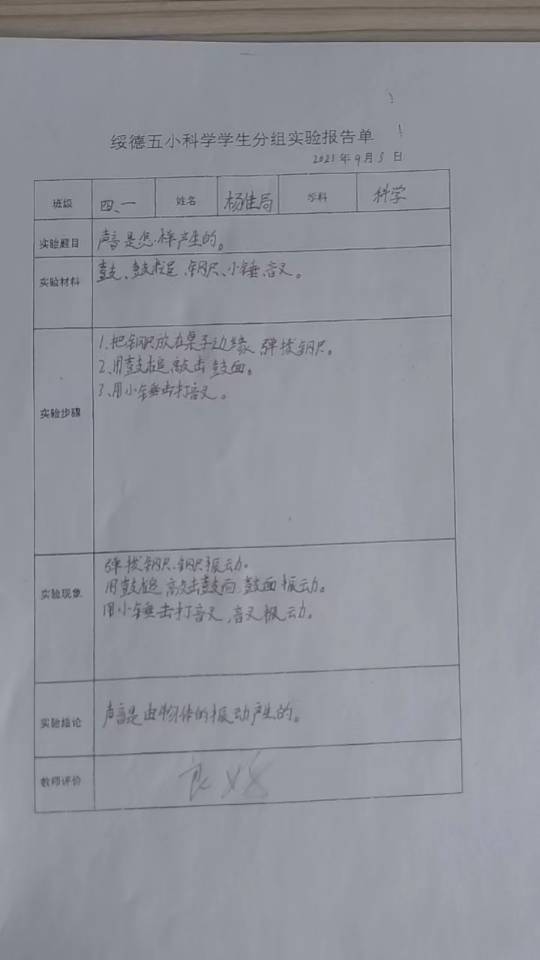 绥德五小科学学生分组实验报告单
2021年9月3日
班级 四、一 姓名 杨佳局 学科 科学
实验题目 声音是怎样产生的。
实验材料 鼓、鼓槌、钢尺、小锤、音叉。
实验步骤
1、把钢尺放在桌子边缘,弹拨钢尺。
2、用鼓槌敲击鼓面。
3、用小锤击打音叉。
实验现象
弹拨钢尺,钢尺振动。
用鼓槌敲击鼓面,鼓面振动。
用小锤击打音叉,音叉振动。
实验结论 声音是由物体的振动产生的。
教师评价 良